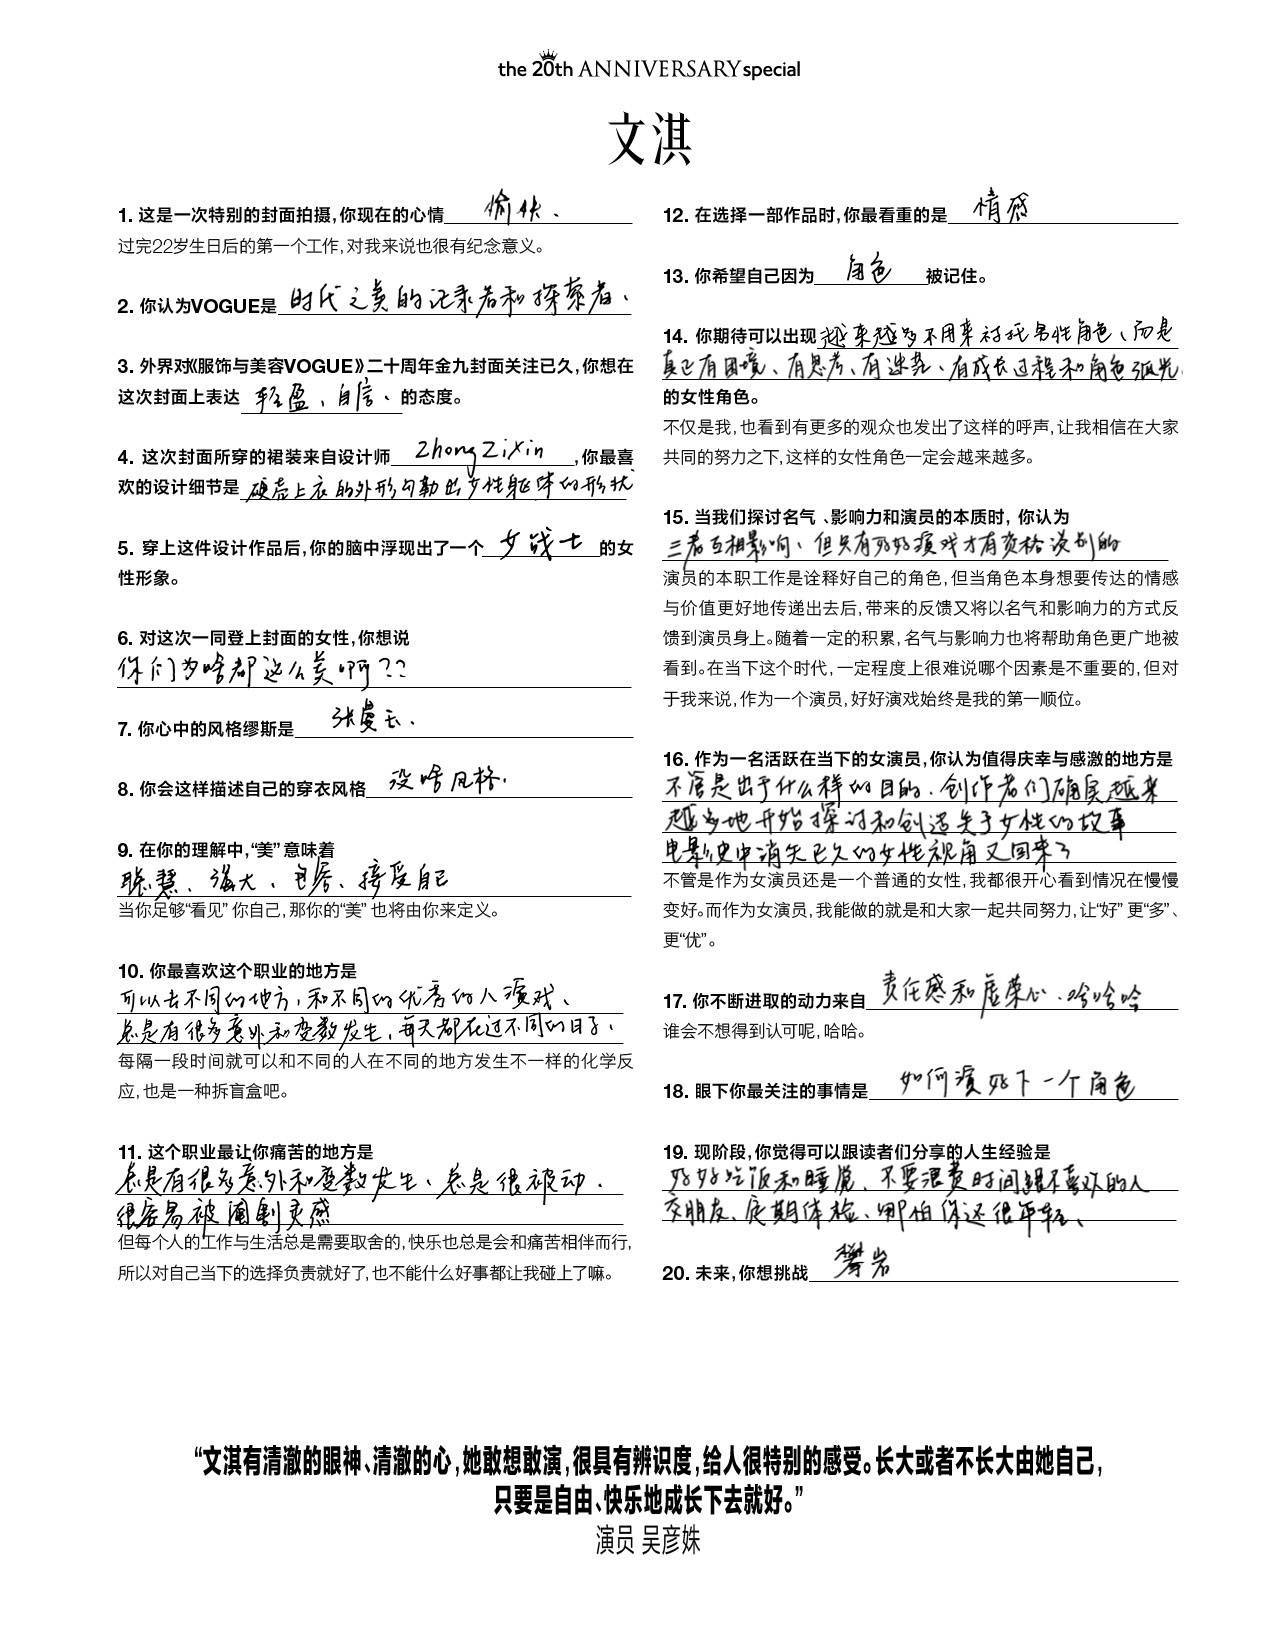 the 20th ANNIVERSARY special
文淇
1. 这是一次特别的封面拍摄,你现在的心情 愉快、
过完22岁生日后的第一个工作,对我来说也很有纪念意义。
2. 你认为VOGUE是 时代之美的记录者和探索者、
3. 外界对《服饰与美容VOGUE》二十周年金九封面关注已久,你想在
这次封面上表达 轻盈、自信、 的态度。
4. 这次封面所穿的裙装来自设计师 Zhong Zixin ,你最喜
欢的设计细节是 硬壳上衣的外形勾勒出女性躯体的形状
5. 穿上这件设计作品后,你的脑中浮现出了一个 女战士 的女
性形象。
6. 对这次一同登上封面的女性,你想说
你们为啥都这么美啊??
7. 你心中的风格缪斯是 张曼玉.
8. 你会这样描述自己的穿衣风格 没啥风格.
9. 在你的理解中,“美”意味着
聪慧、强大、包容、接受自己
当你足够“看见” 你自己,那你的“美” 也将由你来定义。
10. 你最喜欢这个职业的地方是
可以去不同的地方,和不同的优秀的人演戏、
总是有很多意外和变数发生,每天都在过不同的日子.
每隔一段时间就可以和不同的人在不同的地方发生不一样的化学反
应,也是一种拆盲盒吧。
11. 这个职业最让你痛苦的地方是
总是有很多意外和变数发生、总是很被动.
很容易被阉割灵感
但每个人的工作与生活总是需要取舍的,快乐也总是会和痛苦相伴而行,
所以对自己当下的选择负责就好了,也不能什么好事都让我碰上了嘛。
12. 在选择一部作品时,你最看重的是 情感
13. 你希望自己因为 角色 被记住。
14. 你期待可以出现 越来越多不用来衬托男性角色、而是
真正有困境、有思考、有迷茫、有成长过程和角色弧光
的女性角色。
不仅是我,也看到有更多的观众也发出了这样的呼声,让我相信在大家
共同的努力之下,这样的女性角色一定会越来越多。
15. 当我们探讨名气 、影响力和演员的本质时, 你认为
三者互相影响、但只有好好演戏才有资格谈别的
演员的本职工作是诠释好自己的角色,但当角色本身想要传达的情感
与价值更好地传递出去后,带来的反馈又将以名气和影响力的方式反
馈到演员身上。随着一定的积累,名气与影响力也将帮助角色更广地被
看到。在当下这个时代,一定程度上很难说哪个因素是不重要的,但对
于我来说,作为一个演员,好好演戏始终是我的第一顺位。
16. 作为一名活跃在当下的女演员,你认为值得庆幸与感激的地方是
不管是出于什么样的目的、创作者们确实越来
越多地开始探讨和创造关于女性的故事
电影史中消失已久的女性视角又回来了
不管是作为女演员还是一个普通的女性,我都很开心看到情况在慢慢
变好。而作为女演员,我能做的就是和大家一起共同努力,让“好” 更“多”、
更“优”。
17. 你不断进取的动力来自 责任感和虚荣心.哈哈哈
谁会不想得到认可呢,哈哈。
18. 眼下你最关注的事情是 如何演好下一个角色
19. 现阶段,你觉得可以跟读者们分享的人生经验是
好好吃饭和睡觉、不要浪费时间跟不喜欢的人
交朋友、定期体检、哪怕你还很年轻、
20. 未来,你想挑战 攀岩
“文淇有清澈的眼神、清澈的心,她敢想敢演,很具有辨识度,给人很特别的感受。长大或者不长大由她自己,
只要是自由、快乐地成长下去就好。”
演员 吴彦姝